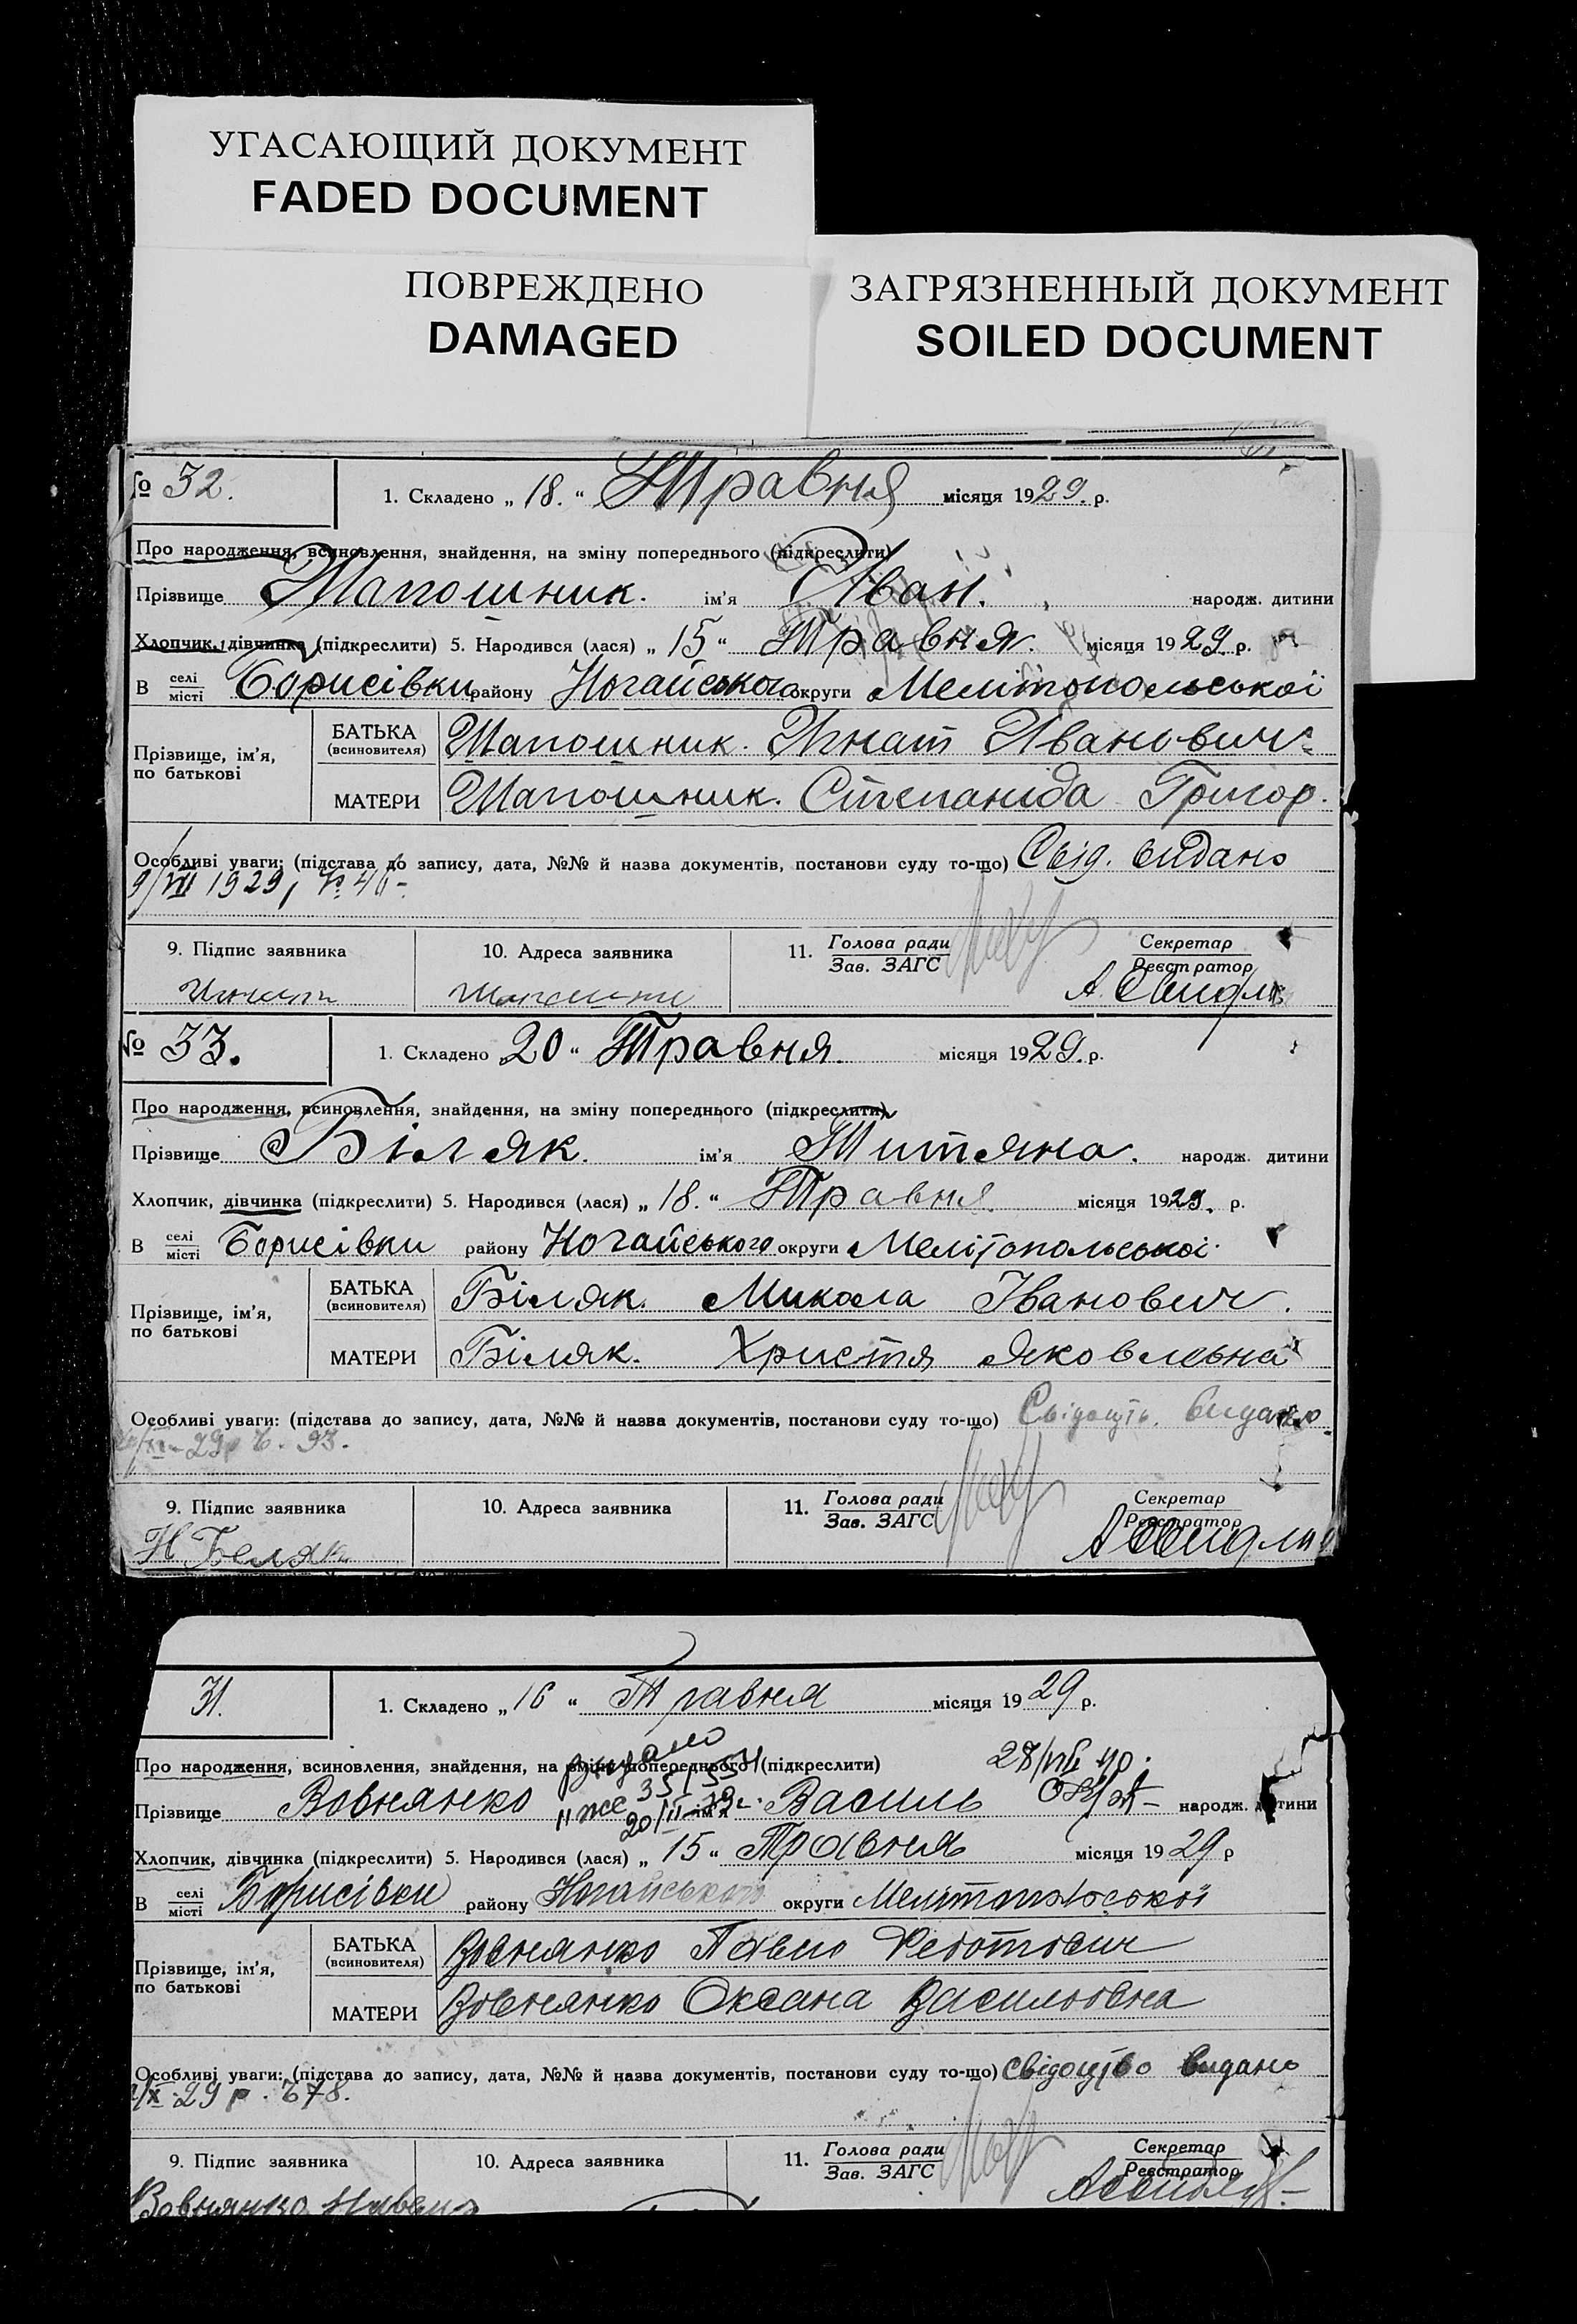 УГАСАЮЩИЙ ДОКУМЕНТ
FADED DOCUMENT
ПОВРЕЖДЕНО
DAMAGED
ЗАГРЯЗНЕННЫЙ ДОКУМЕНТ
SOILED DOCUMENT
№ 32.
1. Складено „ 18. “ Травня місяця 1929. р.
Про народження, всиновлення, знайдення, на зміну попереднього (підкреслити)
Прізвище Шапошник. ім'я Іван. народж. дитини
Хлопчик, дівчинка (підкреслити) 5. Народився (лася) „ 15 “ Травня. місяця 1929. р.
В селі місті Борисівки району Ногайського округи Мелітопольської
Прізвище, ім'я, по батькові
БАТЬКА (всиновителя) Шапошник. Игнат Иванович
МАТЕРИ Шапошник. Степаніда Григор.
Особливі уваги: (підстава до запису, дата, №№ й назва документів, постанови суду то-що) Свід. видано
9/VII 1929,
9. Підпис заявника
10. Адреса заявника
11. Голова ради Зав. ЗАГС
Секретар Реєстратор
№ 33.
1. Складено 20 “ Травня. місяця 1929. р.
Про народження, всиновлення, знайдення, на зміну попереднього (підкреслити)
Прізвище Біляк. ім'я Титяна. народж. дитини
Хлопчик, дівчинка (підкреслити) 5. Народився (лася) „ 18. “ Травня. місяця 1929. р.
В селі місті Борисівки району Ногайського округи Мелітопольської.
Прізвище, ім'я, по батькові
БАТЬКА (всиновителя) Біляк. Микола Іванович.
МАТЕРИ Біляк. Христя Яковлевна
Особливі уваги: (підстава до запису, дата, №№ й назва документів, постанови суду то-що) Свідоцтв. видано
29р 93.
9. Підпис заявника
10. Адреса заявника
11. Голова ради Зав. ЗАГС
Секретар Реєстратор
Н Беляк
31.
1. Складено „ 16 “ Травня місяця 1929 р.
видано
Про народження, всиновлення, знайдення, на зміну попереднього (підкреслити)
Прізвище Вовнянко ім'я Василь народж. дитини
Хлопчик, дівчинка (підкреслити) 5. Народився (лася) „ 15 “ Травня місяця 1929 р
В селі місті Борисівки району Ногайського округи Мелітопольської
Прізвище, ім'я, по батькові
БАТЬКА (всиновителя) Вовнянко Павло
МАТЕРИ Вовнянко Оксана Васильовна
Особливі уваги: (підстава до запису, дата, №№ й назва документів, постанови суду то-що) свідоцтво видано
29 р.
9. Підпис заявника
10. Адреса заявника
11. Голова ради Зав. ЗАГС
Секретар Реєстратор
Вовнянко Павло